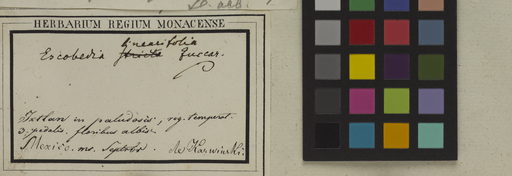 HERBARIUM REGIUM MONACENSE
linearifolia
Escobedia stricta Zuccar.
Ixtlan in paludosis, reg. temperat.
3 pedalis. floribus albis.
Mexico. m. Septbr. de Karwinski.